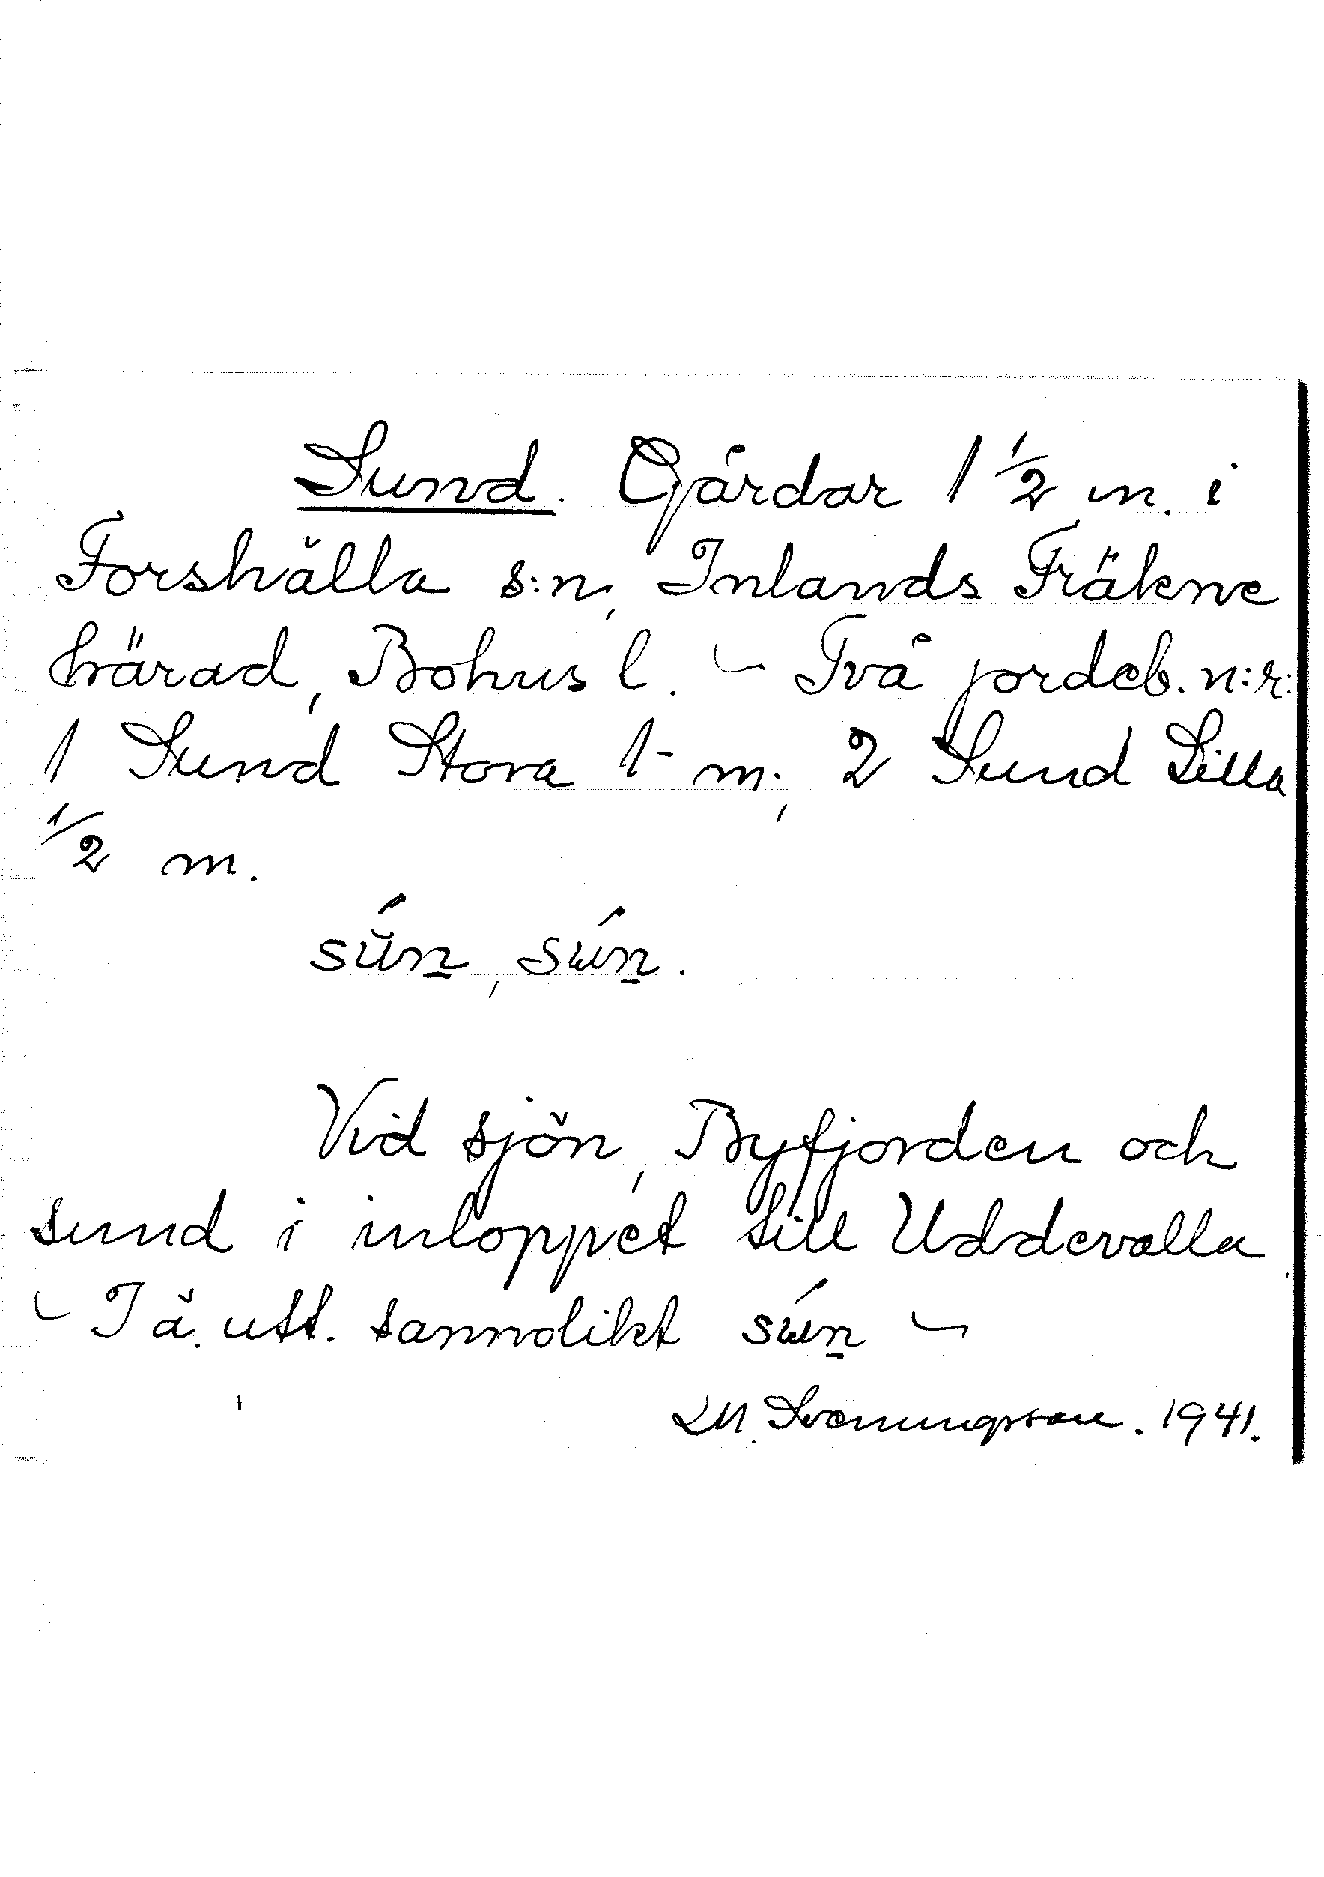 Sund. Gårdar 1 1/2 m. i
Forshälla s:n, Inlands Fräkne
härad, Bohus l. – Två jordeb. n:r:
1 Sund Stora 1 - m.; 2 Sund Lilla
1/2 m.
sú̆n̲, sún̲.
Vid sjön, Byfjorden och
sund i inloppet till Uddevalla
– I ä. utt. sannolikt sún̲ –
Svenungsson. 1941.